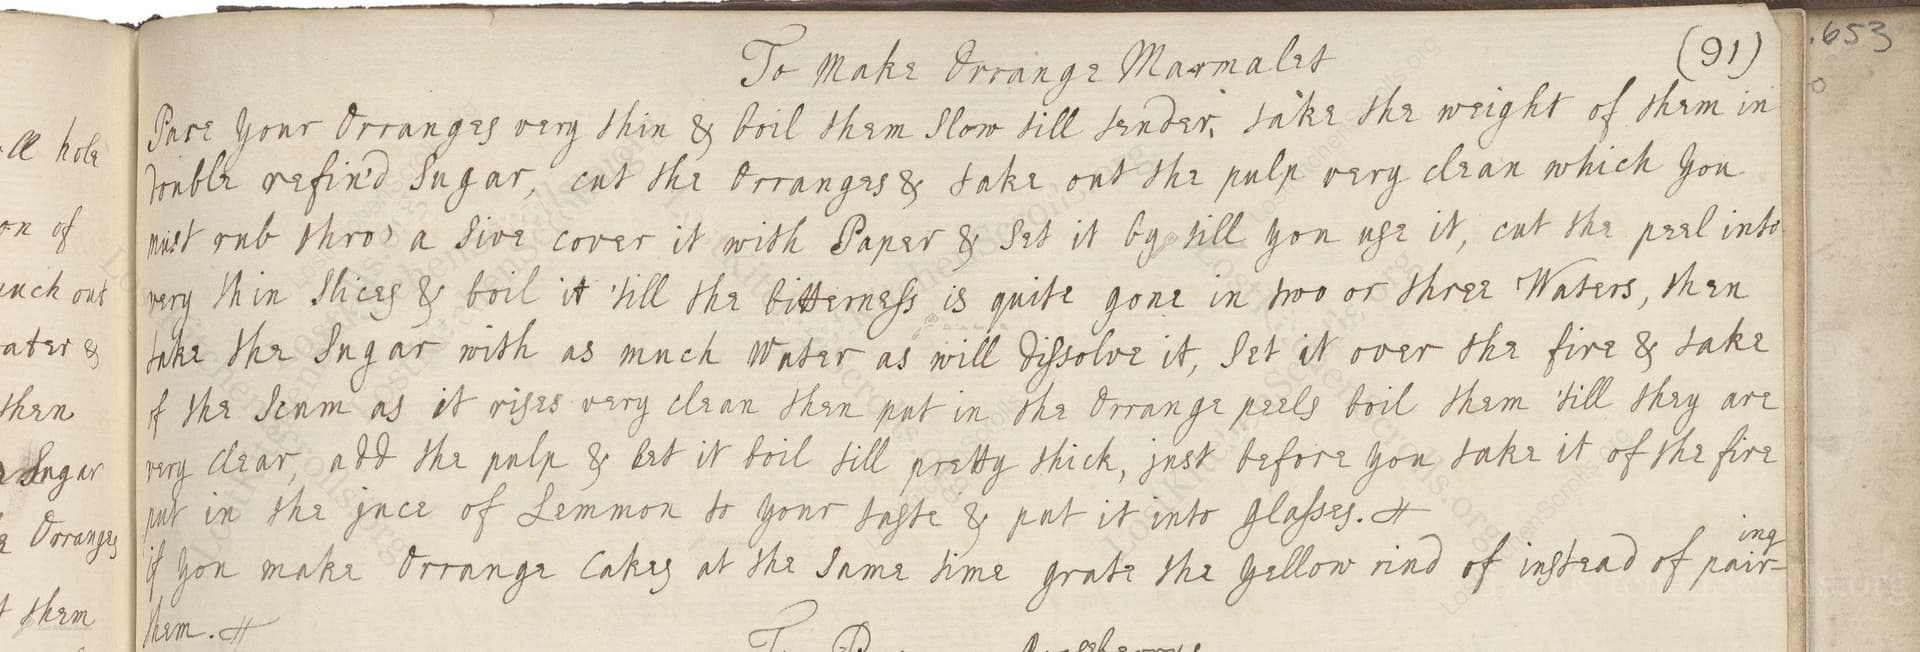 .653
To Make Orrange Marmalet (91)
Pare your Orranges very thin & boil them Slow till tender, take the weight of them in
Double refin'd Sugar, cut the Orranges & take out the pulp very clean which you
must rub thro' a Sive cover it with Paper & Set it by till you use it, cut the peel into
very thin Slices & boil it 'till the bitterness is quite gone in two or three Waters, then
take the Sugar with as much Water as will Dissolve it, Set it over the fire & take
of the Scum as it rises very clean then put in the Orrange peels boil them 'till they are
very clear, add the pulp & let it boil till pretty thick, just before you take it of the fire
put in the juce of Lemmon to your taste & put it into Glasses.
if you make Orrange Cakes at the Same time grate the yellow rind of instead of pair-ing
them.
To
ll hole
on of
much out
ater &
then
Sugar
Orranges
them
LostKitchenScrolls.org